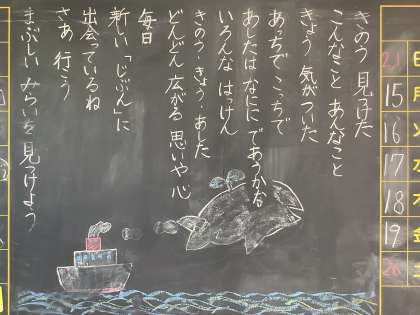 きのう 見つけた
こんなこと あんなこと
きょう 気がついた
あっちで こっちで
あしたは なにに であうかな
いろんな はっけん
きのう・きょう・あした
どんどん 広がる 思いや 心
毎日
新しい「じぶん」に
出会っているね
さあ 行こう
まぶしい みらいを 見つけよう
21 日
15 月
16 火
17 水
18 木
19 金
20 土